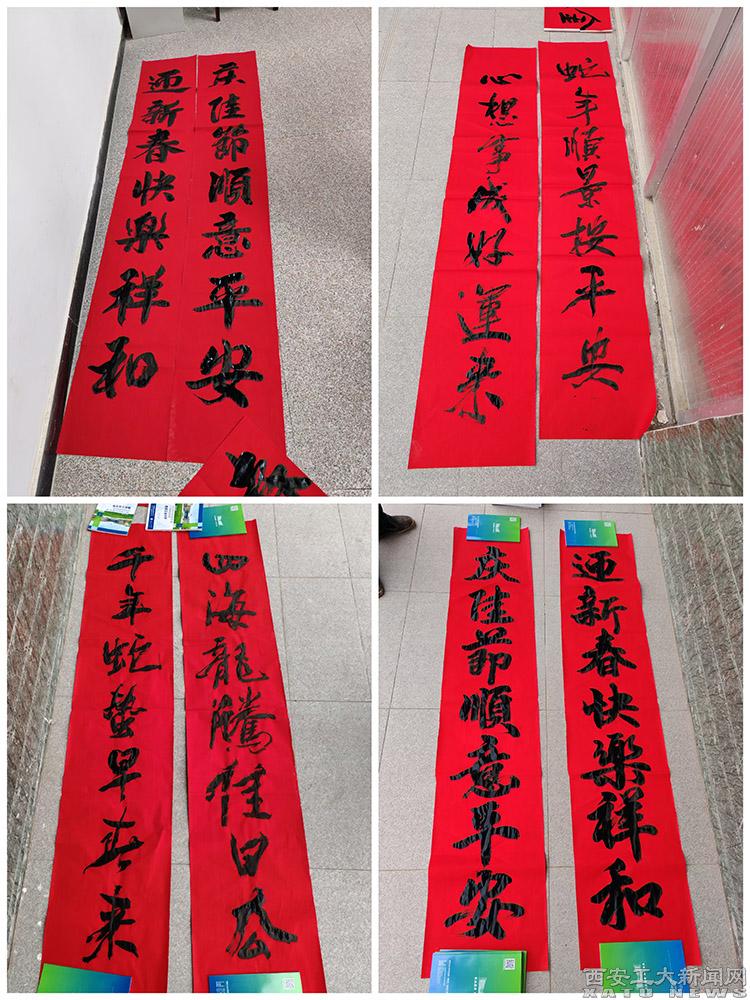 庆佳節順意平安
迎新春快樂祥和
蛇年順景接平
心想事成好運来
四海龍騰佳日
千年蛇蛰早春来
迎新春快樂祥和
庆佳節順意平安
西安工大新闻网
XATU NEWS